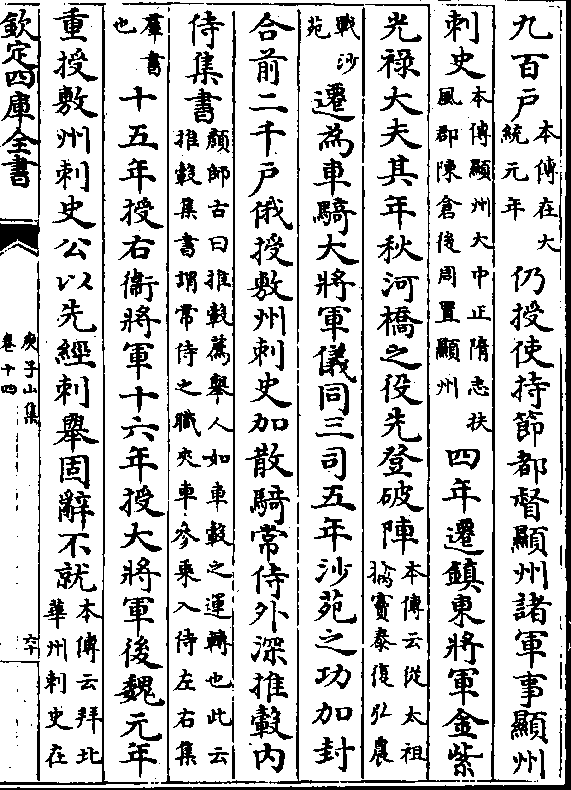 九百户本傳在大統元年仍授使持節都督顯州諸軍事顯州
刺史本傳顯州大中正隋志扶風郡陳倉後周置顯州四年遷鎮東將軍金紫
光祿大夫其年秋河橋之役先登破陣本傳云從太祖擒竇泰復弘農
戰沙苑遷為車騎大將軍儀同三司五年沙苑之功加封
合前二千户俄授敷州刺史加散騎常侍外深推轂内
侍集書顔師古曰推轂薦舉人如車轂之運轉也此云推轂集書謂常侍之職夾車參乘入侍左右集
羣書也十五年授右衞將軍十六年授大將軍後魏元年
重授敷州刺史公以先經刺舉固辭不就本傳云拜北華州刺史在
欽定四庫全書
庾子山集
卷十四
六十